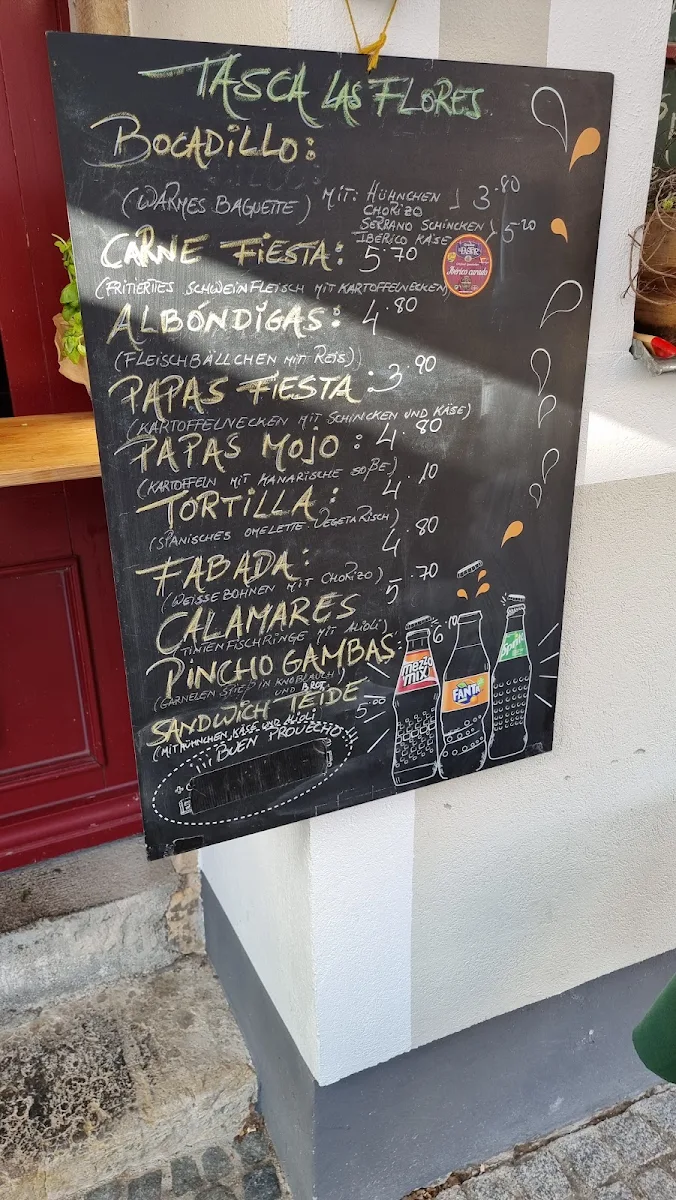 TASCA LAS FLORES
BOCADILLO:
(WARMES BAGUETTE) MIT: HÜHNCHEN 3.80
CHORIZO
SERRANO SCHINCKEN 5.20
IBERICO KÄSE
CARNE FIESTA: 5.70
(FRITIERTES SCHWEINFLEISCH MIT KARTOFFELNECKEN)
Ibérico curado
ALBÓNDIGAS: 4.80
(FLEISCHBÄLLCHEN MIT REIS)
PAPAS FIESTA: 3.90
(KARTOFFELNECKEN MIT SCHINCKEN UND KÄSE)
PAPAS MOJO: 4.80
(KARTOFFELN MIT KANARISCHE SOßE)
TORTILLA: 4.10
(SPANISCHES OMELETTE VEGETARISCH)
FABADA: 4.80
(WEISSE BOHNEN MIT CHORIZO)
CALAMARES 5.70
(TINTENFISCHRINGE MIT ALIOLI)
PINCHO GAMBAS 6.70
(GARNELEN SPIEß IN KNOBLAUCH
UND BROT)
SANDWICH TEIDE 5.00
(MIT HÜHNCHEN, KÄSE UND ALIOLI
BUEN PROVECHO
mezzo mix
FANTA
Sprite